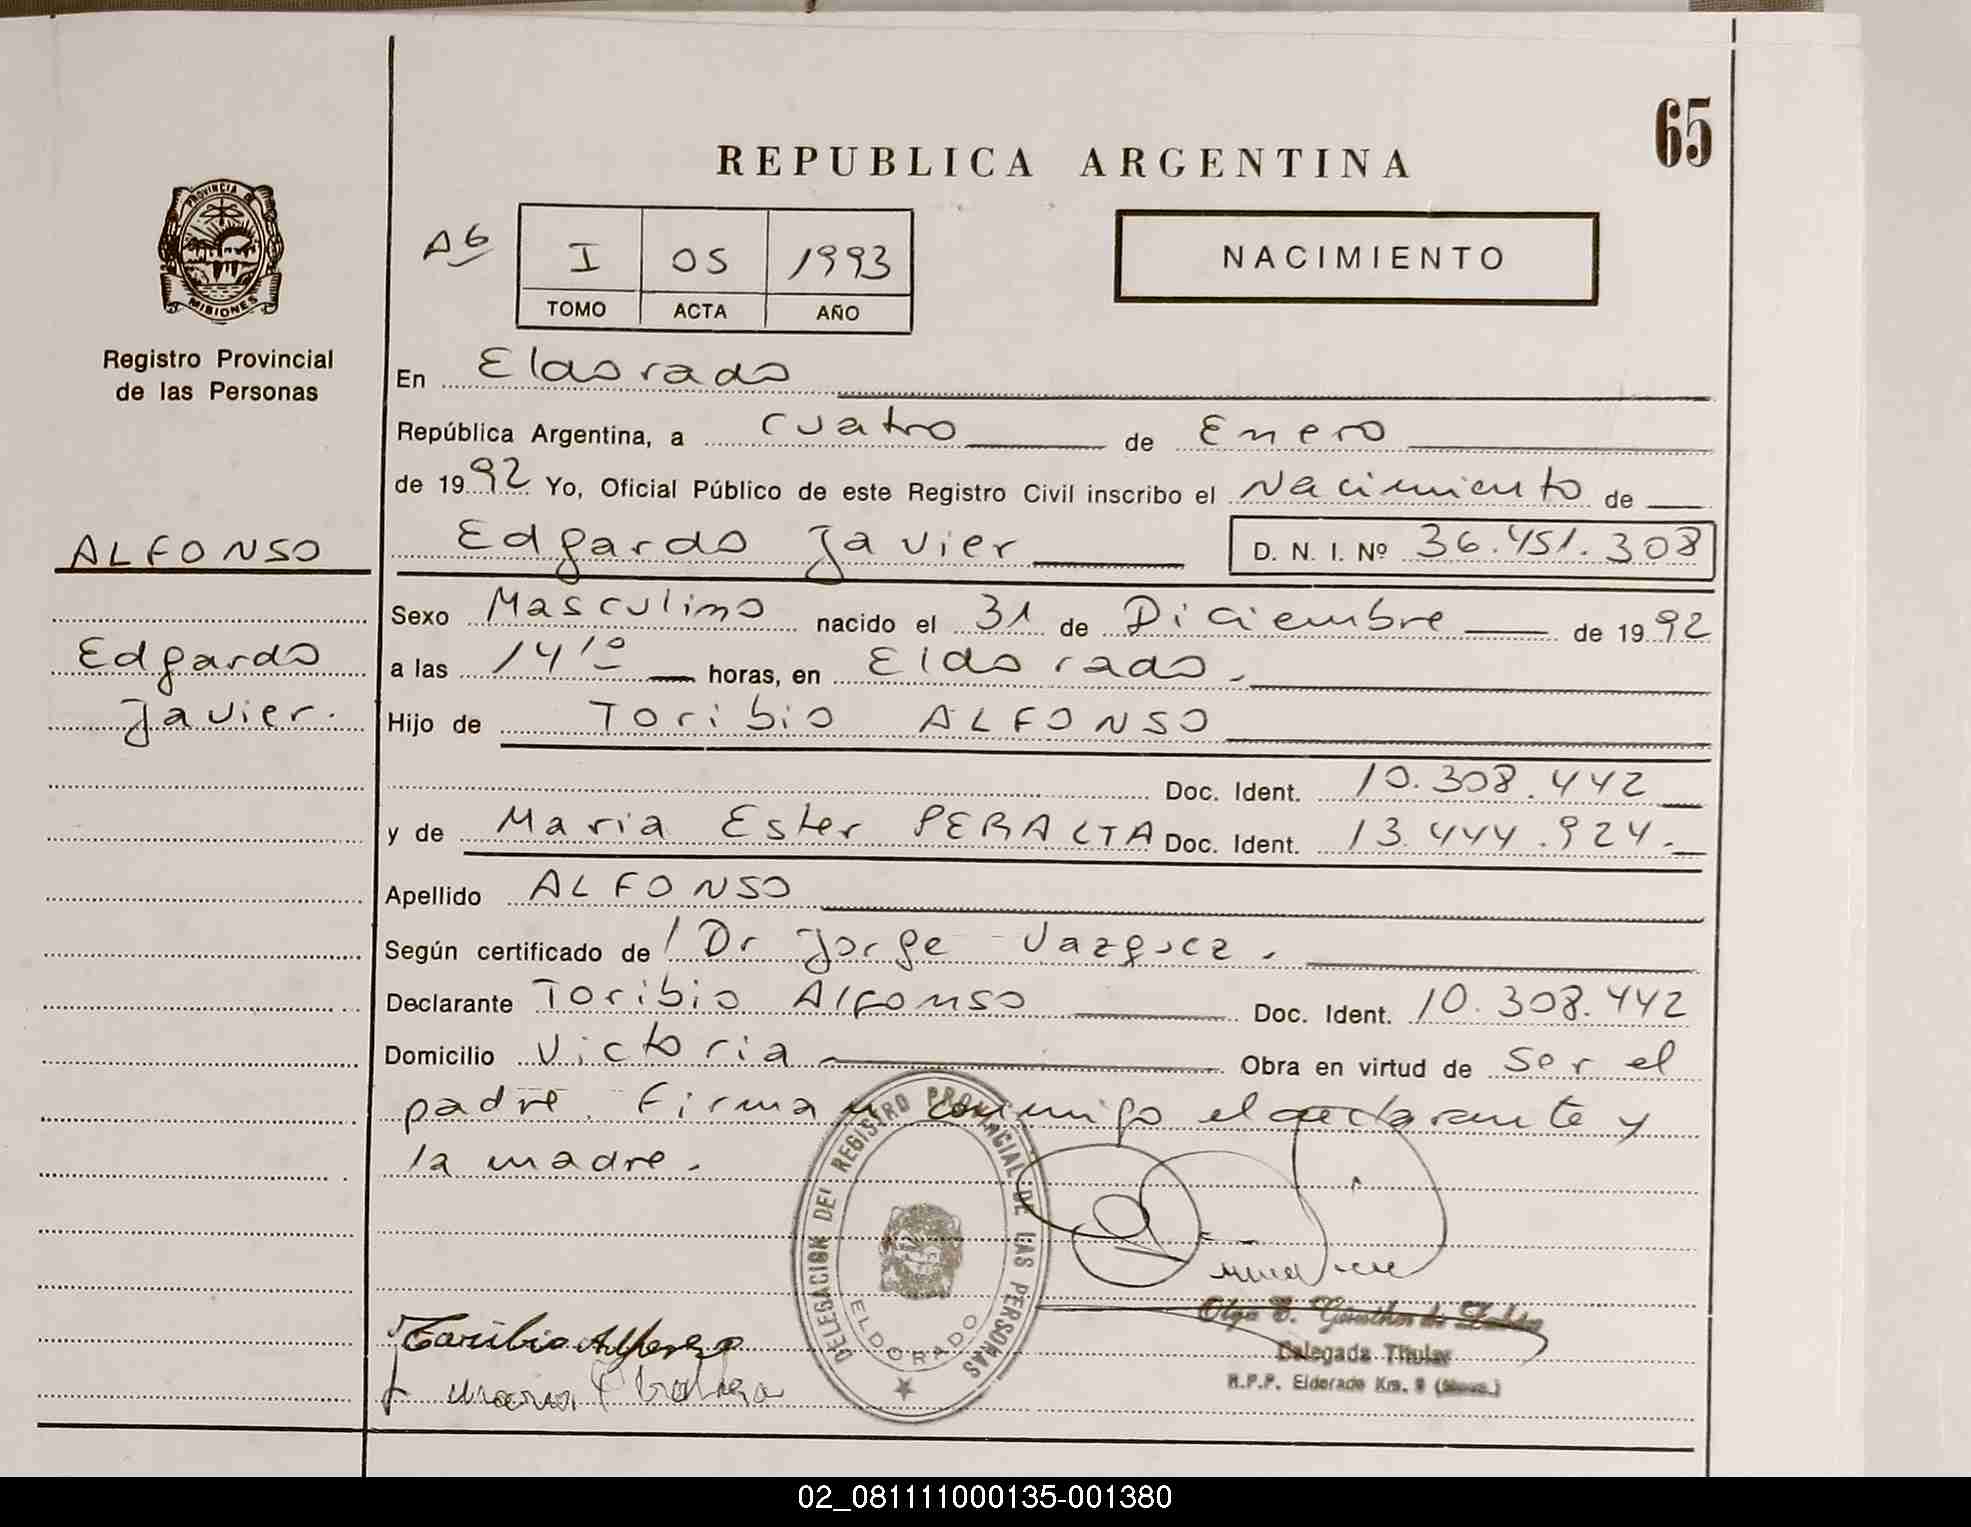 65
REPUBLICA ARGENTINA
PROVINCIA DE
MISIONES
Registro Provincial
de las Personas
A6 I 05 1993
TOMO ACTA AÑO
NACIMIENTO
En Eldorado
República Argentina, a cuatro de Enero
de 1992 Yo, Oficial Público de este Registro Civil inscribo el Nacimiento de
ALFONSO
Edgardo Javier D. N. I. Nº 36.451.308
Sexo Masculino nacido el 31 de Diciembre de 1992
Edgardo
a las 14 1º horas, en Eldorado.
Javier.
Hijo de Toribio ALFONSO
Doc. Ident. 10.308.442
y de Maria Ester PERALTA Doc. Ident. 13.444.924.
Apellido ALFONSO
Según certificado de Dr Jorge Vazquez.
Declarante Toribio Alfonso Doc. Ident. 10.308.442
Domicilio Victoria Obra en virtud de ser el
padre. Firman conmigo el declarante y
la madre.
DELEGACION DEL REGISTRO PROVINCIAL DE LAS PERSONAS
ELDORADO
Olga C. de
Delegada Titular
R.P.P. Eldorado Km. 9 (Mnes.)
Toribio Alfonso
02_081111000135-001380